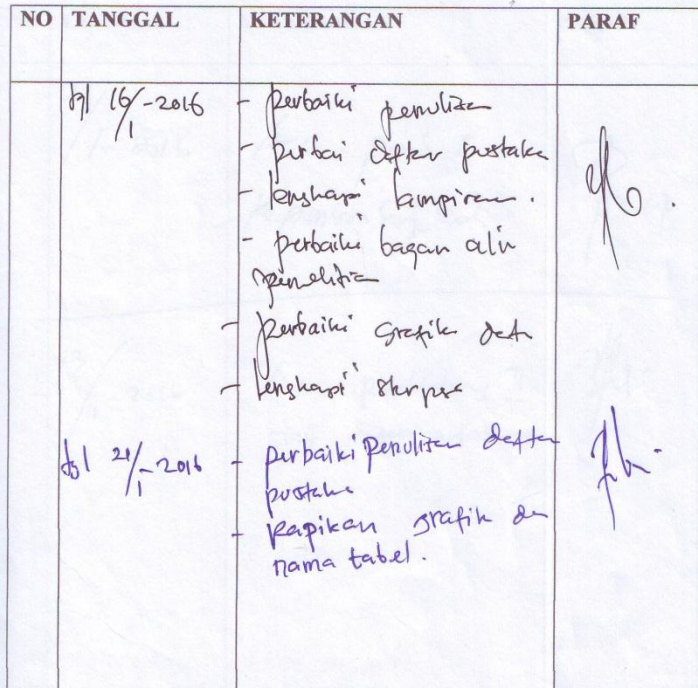 NO TANGGAL KETERANGAN PARAF
tgl 16/1-2016 - perbaiki penulisan
- perbai daftar pustaka
- lengkapi lampiran.
- perbaiki bagan alir
penelitian
- perbaiki grafik data
- lengkapi skripsi
tgl 21/1-2016 - perbaiki penulisan daftar
pustaka
- Rapikan grafik dan
nama tabel.